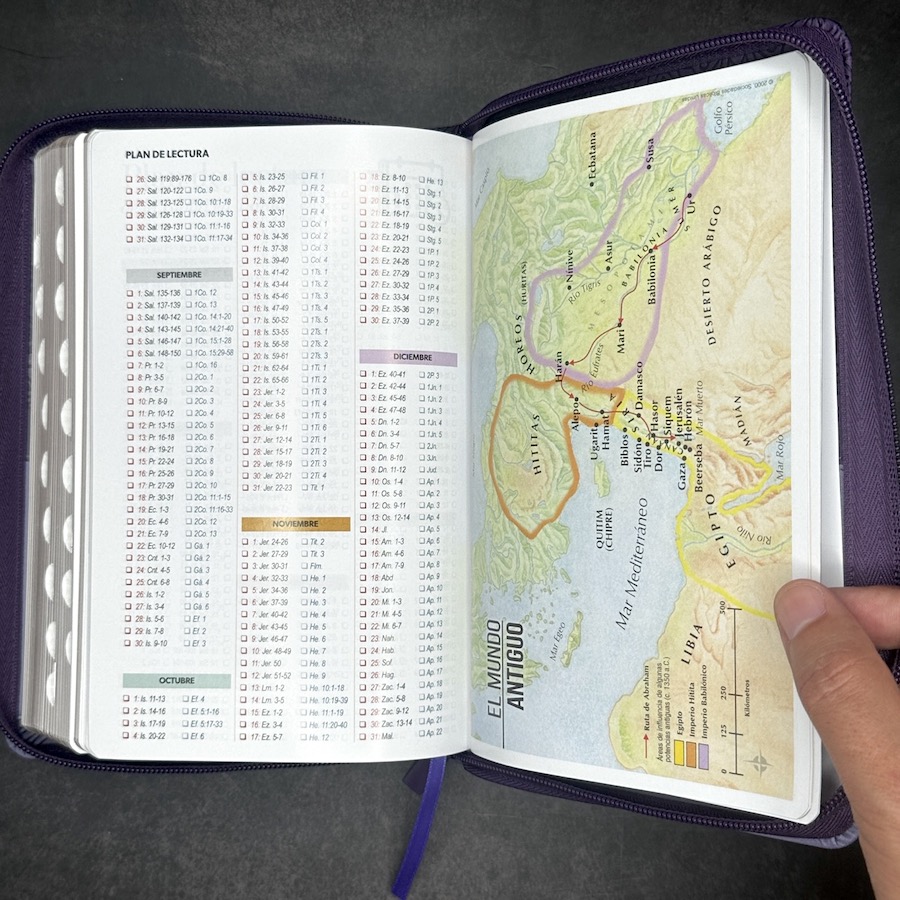 PLAN DE LECTURA
26: Sal. 119:89-176 1Co. 8
27: Sal. 120-122 1Co. 9
28: Sal. 123-125 1Co. 10:1-18
29: Sal. 126-128 1Co. 10:19-33
30: Sal. 129-131 1Co. 11:1-16
31: Sal. 132-134 1Co. 11:17-34
SEPTIEMBRE
1: Sal. 135-136 1Co. 12
2: Sal. 137-139 1Co. 13
3: Sal. 140-142 1Co. 14:1-20
4: Sal. 143-145 1Co. 14:21-40
5: Sal. 146-147 1Co. 15:1-28
6: Sal. 148-150 1Co. 15:29-58
7: Pr. 1-2 1Co. 16
8: Pr. 3-5 2Co. 1
9: Pr. 6-7 2Co. 2
10: Pr. 8-9 2Co. 3
11: Pr. 10-12 2Co. 4
12: Pr. 13-15 2Co. 5
13: Pr. 16-18 2Co. 6
14: Pr. 19-21 2Co. 7
15: Pr. 22-24 2Co. 8
16: Pr. 25-26 2Co. 9
17: Pr. 27-29 2Co. 10
18: Pr. 30-31 2Co. 11:1-15
19: Ec. 1-3 2Co. 11:16-33
20: Ec. 4-6 2Co. 12
21: Ec. 7-9 2Co. 13
22: Ec. 10-12 Gá. 1
23: Cnt. 1-3 Gá. 2
24: Cnt. 4-5 Gá. 3
25: Cnt. 6-8 Gá. 4
26: Is. 1-2 Gá. 5
27: Is. 3-4 Gá. 6
28: Is. 5-6 Ef. 1
29: Is. 7-8 Ef. 2
30: Is. 9-10 Ef. 3
OCTUBRE
1: Is. 11-13 Ef. 4
2: Is. 14-16 Ef. 5:1-16
3: Is. 17-19 Ef. 5:17-33
4: Is. 20-22 Ef. 6
5: Is. 23-25 Fil. 1
6: Is. 26-27 Fil. 2
7: Is. 28-29 Fil. 3
8: Is. 30-31 Fil. 4
9: Is. 32-33 Col. 1
10: Is. 34-36 Col. 2
11: Is. 37-38 Col. 3
12: Is. 39-40 Col. 4
13: Is. 41-42 1Ts. 1
14: Is. 43-44 1Ts. 2
15: Is. 45-46 1Ts. 3
16: Is. 47-49 1Ts. 4
17: Is. 50-52 1Ts. 5
18: Is. 53-55 2Ts. 1
19: Is. 56-58 2Ts. 2
20: Is. 59-61 2Ts. 3
21: Is. 62-64 1Ti. 1
22: Is. 65-66 1Ti. 2
23: Jer. 1-2 1Ti. 3
24: Jer. 3-5 1Ti. 4
25: Jer. 6-8 1Ti. 5
26: Jer. 9-11 1Ti. 6
27: Jer. 12-14 2Ti. 1
28: Jer. 15-17 2Ti. 2
29: Jer. 18-19 2Ti. 3
30: Jer. 20-21 2Ti. 4
31: Jer. 22-23 Tit. 1
NOVIEMBRE
1: Jer. 24-26 Tit. 2
2: Jer. 27-29 Tit. 3
3: Jer. 30-31 Flm.
4: Jer. 32-33 He. 1
5: Jer. 34-36 He. 2
6: Jer. 37-39 He. 3
7: Jer. 40-42 He. 4
8: Jer. 43-45 He. 5
9: Jer. 46-47 He. 6
10: Jer. 48-49 He. 7
11: Jer. 50 He. 8
12: Jer. 51-52 He. 9
13: Lm. 1-2 He. 10:1-18
14: Lm. 3-5 He. 10:19-39
15: Ez. 1-2 He. 11:1-19
16: Ez. 3-4 He. 11:20-40
17: Ez. 5-7 He. 12
18: Ez. 8-10 He. 13
19: Ez. 11-13 Stg. 1
20: Ez. 14-15 Stg. 2
21: Ez. 16-17 Stg. 3
22: Ez. 18-19 Stg. 4
23: Ez. 20-21 Stg. 5
24: Ez. 22-23 1P. 1
25: Ez. 24-26 1P. 2
26: Ez. 27-29 1P. 3
27: Ez. 30-32 1P. 4
28: Ez. 33-34 1P. 5
29: Ez. 35-36 2P. 1
30: Ez. 37-39 2P. 2
DICIEMBRE
1: Ez. 40-41 2P. 3
2: Ez. 42-44 1Jn. 1
3: Ez. 45-46 1Jn. 2
4: Ez. 47-48 1Jn. 3
5: Dn. 1-2 1Jn. 4
6: Dn. 3-4 1Jn. 5
7: Dn. 5-7 2Jn.
8: Dn. 8-10 3Jn.
9: Dn. 11-12 Jud
10: Os. 1-4 Ap. 1
11: Os. 5-8 Ap. 2
12: Os. 9-11 Ap. 3
13: Os. 12-14 Ap. 4
14: Jl. Ap. 5
15: Am. 1-3 Ap. 6
16: Am. 4-6 Ap. 7
17: Am. 7-9 Ap. 8
18: Abd Ap. 9
19: Jon. Ap. 10
20: Mi. 1-3 Ap. 11
21: Mi. 4-5 Ap. 12
22: Mi. 6-7 Ap. 13
23: Nah. Ap. 14
24: Hab. Ap. 15
25: Sof. Ap. 16
26: Hag. Ap. 17
27: Zac. 1-4 Ap. 18
28: Zac. 5-8 Ap. 19
29: Zac. 9-12 Ap. 20
30: Zac. 13-14 Ap. 21
31: Mal. Ap. 22
EL MUNDO
ANTIGUO
© 2000, Sociedades Bíblicas Unidas
Golfo
Pérsico
Ecbatana
Susa
Ur
SUMER
Nínive
Asur
Río Tigris
BABILONIA
Babilonia
MESOPOTAMIA
DESIERTO ARÁBIGO
HOREOS (HURITAS)
Harán
Mari
Río Eufrates
HITITAS
Alepo
Ugarit
Hamat
Damasco
Biblos
Sidón
Tiro
Hasor
Dor
Siquem
Jerusalén
Hebrón
Gaza
Beerseba
Mar Muerto
MADIÁN
Mar Rojo
QUITIM
(CHIPRE)
Mar Mediterráneo
EGIPTO
Río Nilo
Mar Egeo
LIBIA
Ruta de Abraham
Áreas de influencia de algunas
potencias antiguas (c. 1350 a.C.)
Egipto
Imperio Hitita
Imperio Babilónico
0 125 250 500
Kilómetros